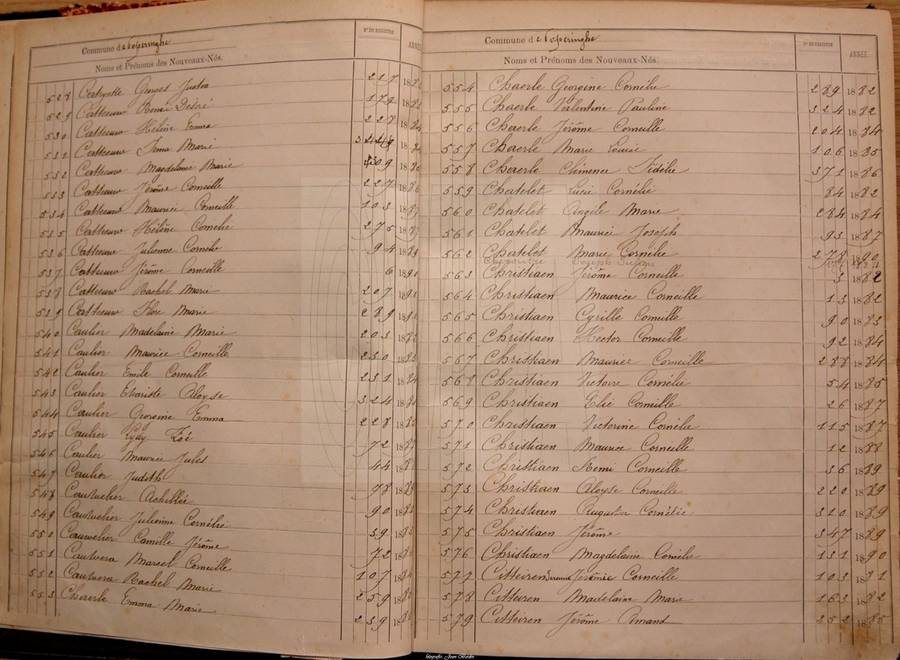 Commune de Poperinghe
Nº DU REGISTRE
Noms et Prénoms des Nouveaux-Nés.
528 Georges Justin 217
529 Catteeuw René Désiré 179
530 Catteeuw Hélène Emma 228
531 Catteeuw Irma Marie
532 Catteeuw Magdelaine Marie 409
533 Catteeuw Jérôme Corneille 227
534 Catteeuw Maurice Corneille 103
535 Catteeuw Hélène Cornelie 275
536 Catteeuw Julienne Cornelie 94
537 Catteeuw Jérôme Corneille 6
538 Catteeuw Rachel Marie 207
539 Catteeuw Flore Marie 289
540 Caulier Madelaine Marie 203
541 Caulier Maurice Corneille 230
542 Caulier Emile Corneille 231
543 Caulier Evariste Aloyse 324
544 Caulier Emma 228
545 Caulier Zoé 72
546 Caulier Maurice Jules 44
547 Caulier Judith 78
548 Cauwelier Achille 90
549 Cauwelier Julienne Cornélie 39
550 Cauwelier Camille Jérôme 72
551 Marcel Corneille 107
552 Rachel Marie 259
553 Chaerle Emma Marie 239
Commune de Poperinghe
Nº DU REGISTRE ANNÉE
Noms et Prénoms des Nouveaux-Nés.
554 Chaerle Georgine Cornélie 289 1882
555 Chaerle Valentine Pauline 324 1882
556 Chaerle Jérôme Corneille 204 1884
557 Chaerle Marie Louise 106 1885
558 Chaerle Clémence Fidélie 371 1886
559 Chatelet Lucie Cornélie 84 1882
560 Chatelet Angèle Marie 284 1884
561 Chatelet Maurice Joseph 93 1887
562 Chatelet Marie Cornélie 278 1890
563 Christiaen Jérôme Corneille 3 1882
564 Christiaen Maurice Corneille 13 1882
565 Christiaen Cyrille Corneille 90 1883
566 Christiaen Hector Corneille 92 1884
567 Christiaen Maurice Corneille 288 1884
568 Christiaen Victoire Cornélie 54 1885
569 Christiaen Elie Corneille 26 1887
570 Christiaen Victorine Cornélie 115 1887
571 Christiaen Maurice Corneille 12 1888
572 Christiaen Remi Corneille 36 1889
573 Christiaen Aloyse Corneille 220 1889
574 Christiaen Augusta Cornélie 320 1889
575 Christiaen Jérôme 347 1889
576 Christiaen Magdelaine Cornélie 131 1890
577 Citteiren Jérémie Corneille 103 1881
578 Citteiren Madelaine Marie 163 1882
579 Citteiren Jérôme Amand 252 1885